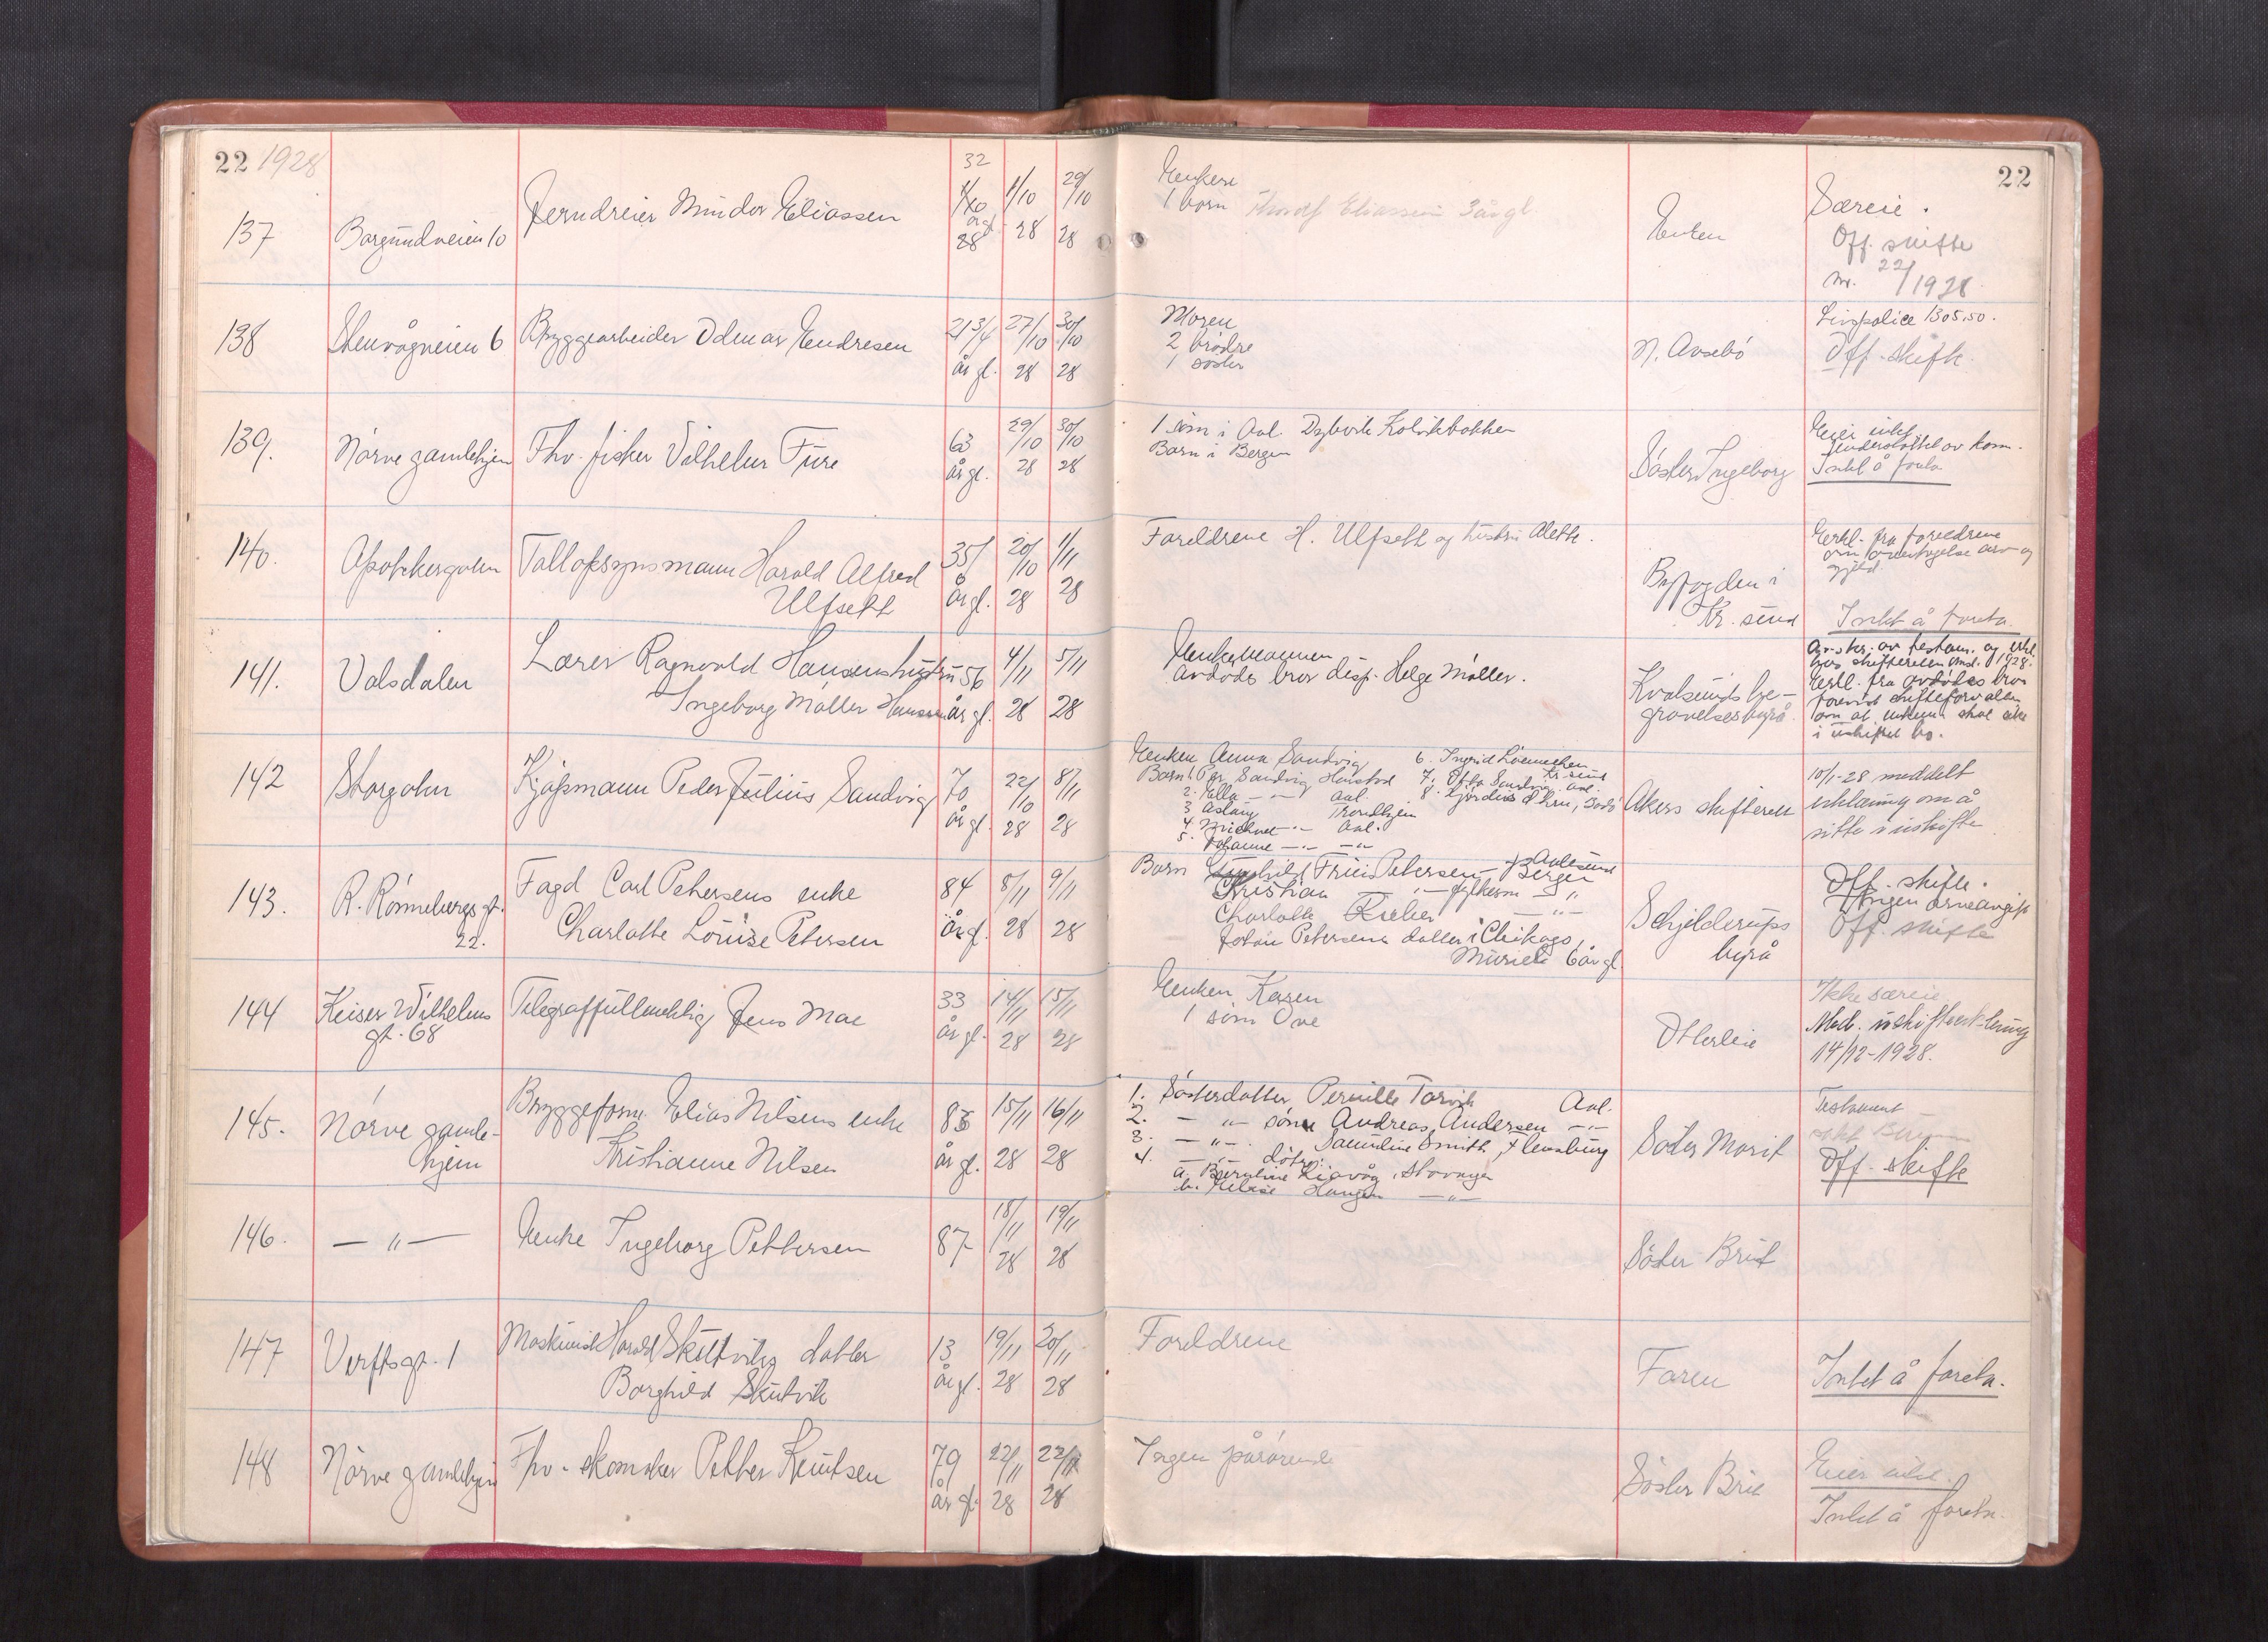 22 1928
137 Borgundveien 10
Jerndreier Mindor Eliassen
32
år gl.
28
1/10
28
29/10
28
Enken
1 barn Thoralf Eliassen 3 år gl.
Enken
Særeie.
Off. skifte
nr. 22/1928
22
138 Stenvågveien 6 Bryggearbeider Odmar Endresen
21 3/4
år gl.
27/10
28
30/10
28
Moren
2 brødre
1 søster
N. Aasebø
Livspolice 1305,50.
Off. skifte.
139. Nørve gamlehjem Fhv. fisker Vilhelm Fure
63
år gl.
29/10
28
30/10
28
1 søn i Aal.
Barn i Bergen
Søster Ingeborg
Eier intet
Understøttet av kom.
Intet å foreta
140. Apothekergaten Tolloppsynsmann Harald Alfred
Ulfseth
35
år gl.
20/10
28
1/11
28
Foreldrene H. Ulfseth og hustru Alette.
Byfogden i
Kr. sund
Erkl. fra foreldrene
om overtagelse arv og
gjeld.
Intet å foreta.
141. Volsdalen Lærer Ragnvald Hansens hustru
Ingeborg Møller Hanssen
56
år gl.
4/11
28
5/11
28
Enkemannen
Avdødes bror disp. Helge Møller.
Kvalsunds be-
gravelsesbyrå.
av testam. og erkl.
1928.
Erkl. fra avdødes bror
i uskiftet bo.
142 Storgaten Kjøpmann Peder Julius Sandvig
70
år gl.
22/10
28
8/11
28
Enken Anna Sandvig
Barn 1. Per Sandvig Hustad
2. Ella —"— Aal.
3 Aslaug Trondhjem
4. Michael —"— Aal.
5. Johanne —"— —"—
6. Ingrid Kr. sund
7. Otto Sandvig Aal.
8. Hjørdis
Akers skifterett
10/1-28 meddelt
erklæring om å
sitte i uskifte
143. R. Rønnebergs gt.
22.
Fogd Carl Petersens enke
Charlotte Louise Petersen
84
år gl.
8/11
28
9/11
28
Barn Friis Petersen — Aalesund
Kristian —"— Bergen
Charlotte Rieber —"—
Johan Petersens datter i Chikago,
6 år gl.
Schjelderups
byrå
Off. skifte.
Ingen arveavgift
Off. skifte
144 Keiser Wilhelms
gt. 68
Telegraffullmektig Jens Moe
33
år gl.
14/11
28
15/11
28
Enken Karen
1 søn Ove
Otterlei
Ikke særeie
Med. uskifteerklæring
14/12-1928.
145. Nørve gamle-
hjem
Bryggeform. Elias Nilsens enke
Kristianne Nilsen
83
år gl.
15/11
28
16/11
28
1. Søsterdatter Pernille Torvik Aal.
2. —"— sønn Andreas Andersen —"—
3. —"— Smith, Flensburg
4. —"— døtre:
a. Stavanger
b. Haugen —"—
Søster Marit
Testament
Off. skifte
146. —"— Enke Ingeborg Pettersen
87
18/11
28
19/11
28
Søster Brit
147 Verftsgt. 1 Maskinist Harald Skutviks datter
Borghild Skutvik
13
år gl.
19/11
28
20/11
28
Foreldrene
Faren
Intet å foreta.
148 Nørve gamlehjem Fhv. skomaker Petter Knutsen
79
år gl.
22/11
28
22/11
28
Ingen pårørende
Søster Brit
Eier intet.
Intet å foreta.